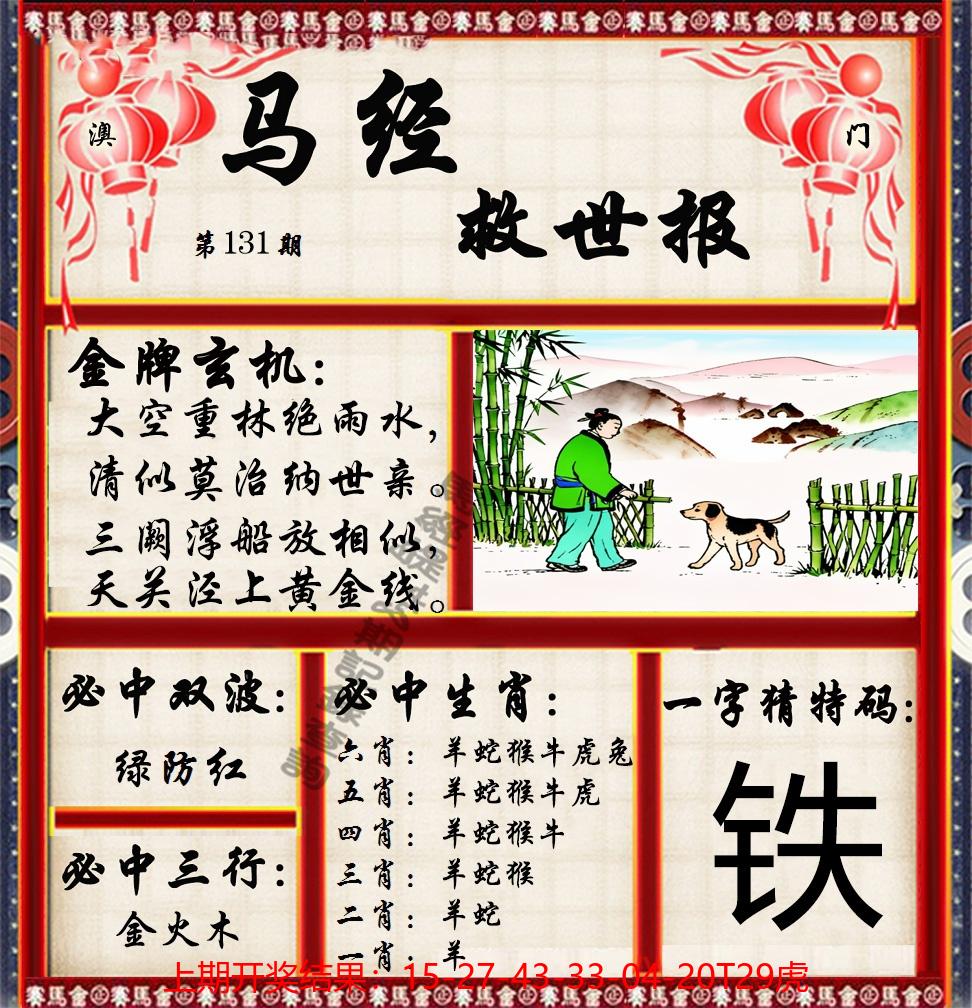 澳
门
马经
救世报
第131期
金牌玄机：
大空重林绝雨水，
清似莫治纳世亲。
三阙浮船放相似，
天关泾上黄金线。
必中双波：
绿防红
必中三行：
金火木
必中生肖：
六肖：羊蛇猴牛虎兔
五肖：羊蛇猴牛虎
四肖：羊蛇猴牛
三肖：羊蛇猴
二肖：羊蛇
一肖：羊
一字猜特码：
铁
上期开奖结果：15-27-43-33-04-20T29虎